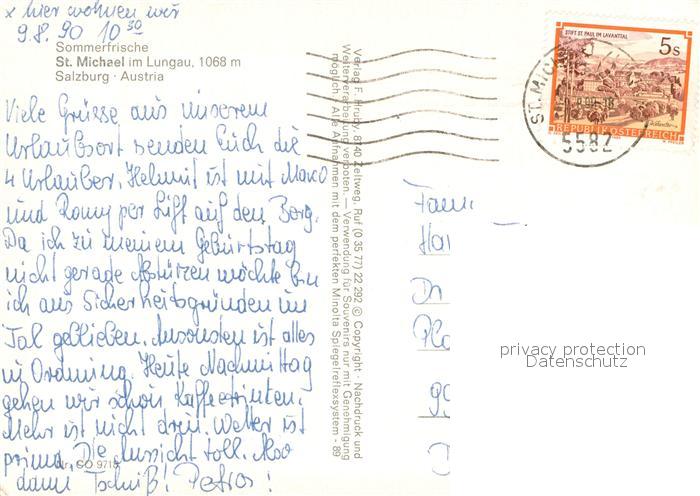 x hier wohnen wir
9.8.90 10³⁰
Sommerfrische
St. Michael im Lungau, 1068 m
Salzburg · Austria
Viele Grüsse aus unserem
Urlaubsort senden Euch die
4 Urlauber. Helmut ist mit Marco
und Romy per Lift auf den Berg.
Da ich zu meinem Geburtstag
nicht gerade Abstürzen möchte bin
ich aus Sicherheitsgründen im
Tal geblieben. Ansonsten ist alles
in Ordnung. Heute Nachmittag
gehen wir schön Kaffeetrinken.
Mehr ist nicht drin. Wetter ist
prima. Die Aussicht toll. Also
dann Tschüß! Petra!
Nr. CO 9715
Verlag F. Hruby, 8740 Zeltweg, Ruf (0 35 77) 22 292 © Copyright · Nachdruck und
Weiterverarbeitung verboten. — Verwendung für Souvenirs nur mit Genehmigung
möglich. · Alle Aufnahmen mit dem perfekten Minolta Spiegelreflexsystem - 89
STIFT ST. PAUL IM LAVANTTAL
5 s
REPUBLIK ÖSTERREICH
ST. MICH
5582
Fam
Ha
Dr
Pla
99
privacy protection
Datenschutz